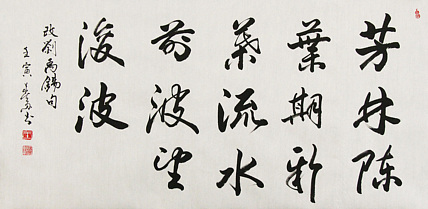 芳林陳
葉期新
葉流水
前波望
後波
改劉禹錫句
壬寅